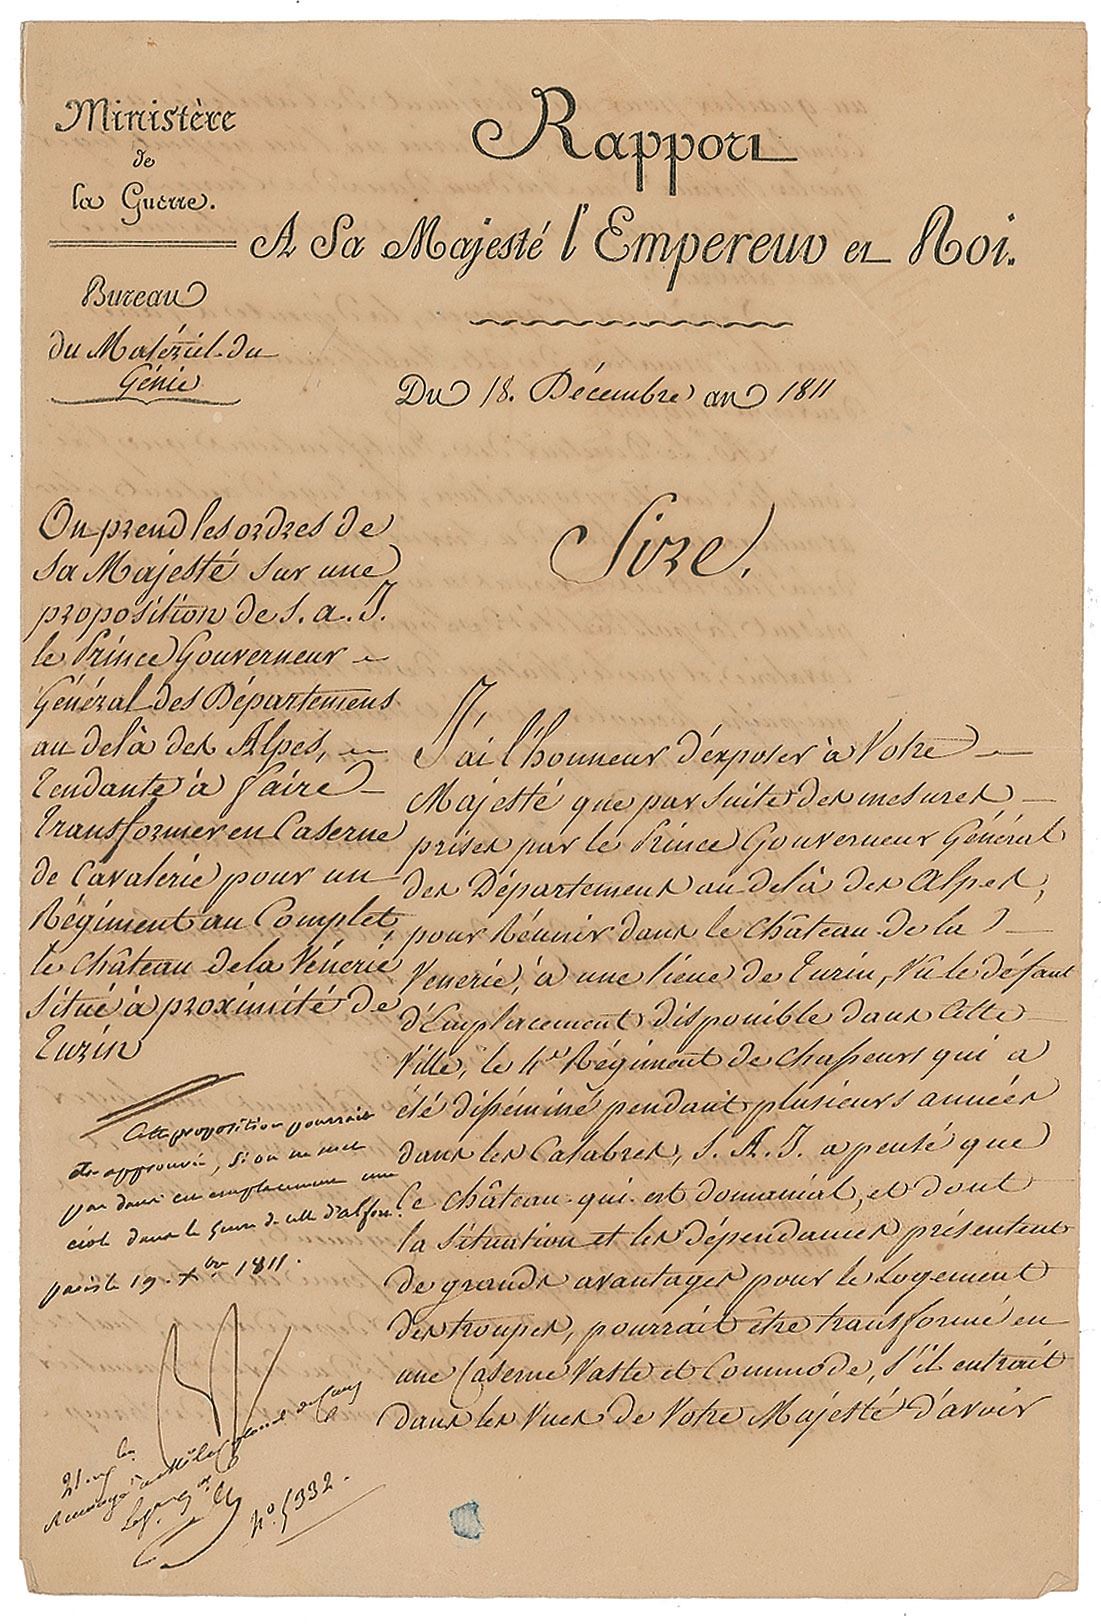 Ministère
de
la Guerre.
Bureau
du Matériel du
Génie
Rapport
A Sa Majesté l'Empereur et Roi.
Du 18. Décembre an 1811
On prend les ordres de
Sa Majesté sur une
proposition de S. a. I.
le Prince Gouverneur
Général des Départemens
au delà des Alpes,
tendante à faire
transformer en Caserne
de Cavalerie pour un
Régiment au Complet,
le château de la Vénerie
situé à proximité de
Turin
Cette proposition pourrait
être approuvée, si on ne met
pas dans cet emplacement une
école dans le genre de celle d'alfort.
paris le 19 Xbre 1811.
21. Xbre
Renvoyé à
No. 5332.
Sire,
J'ai l'honneur d'exposer à Votre
Majesté que par suite des mesures
prises par le Prince Gouverneur Général
des Départemens au delà des Alpes,
pour Réunir dans le château de la
Venerie, à une lieue de Turin, Vu le défaut
d'Emplacement disponible dans Cette
Ville, le 4e. Régiment de chasseurs qui a
été disséminé pendant plusieurs années
dans les Calabres, S. A. I. a pensé que
Ce château qui est domanial, et dont
la situation et les dépendances présentent
de grands avantages pour le Logement
des troupes, pourrait être transformé en
une Caserne Vaste et Commode, S'il entrait
dans les Vues de Votre Majesté d'avoir